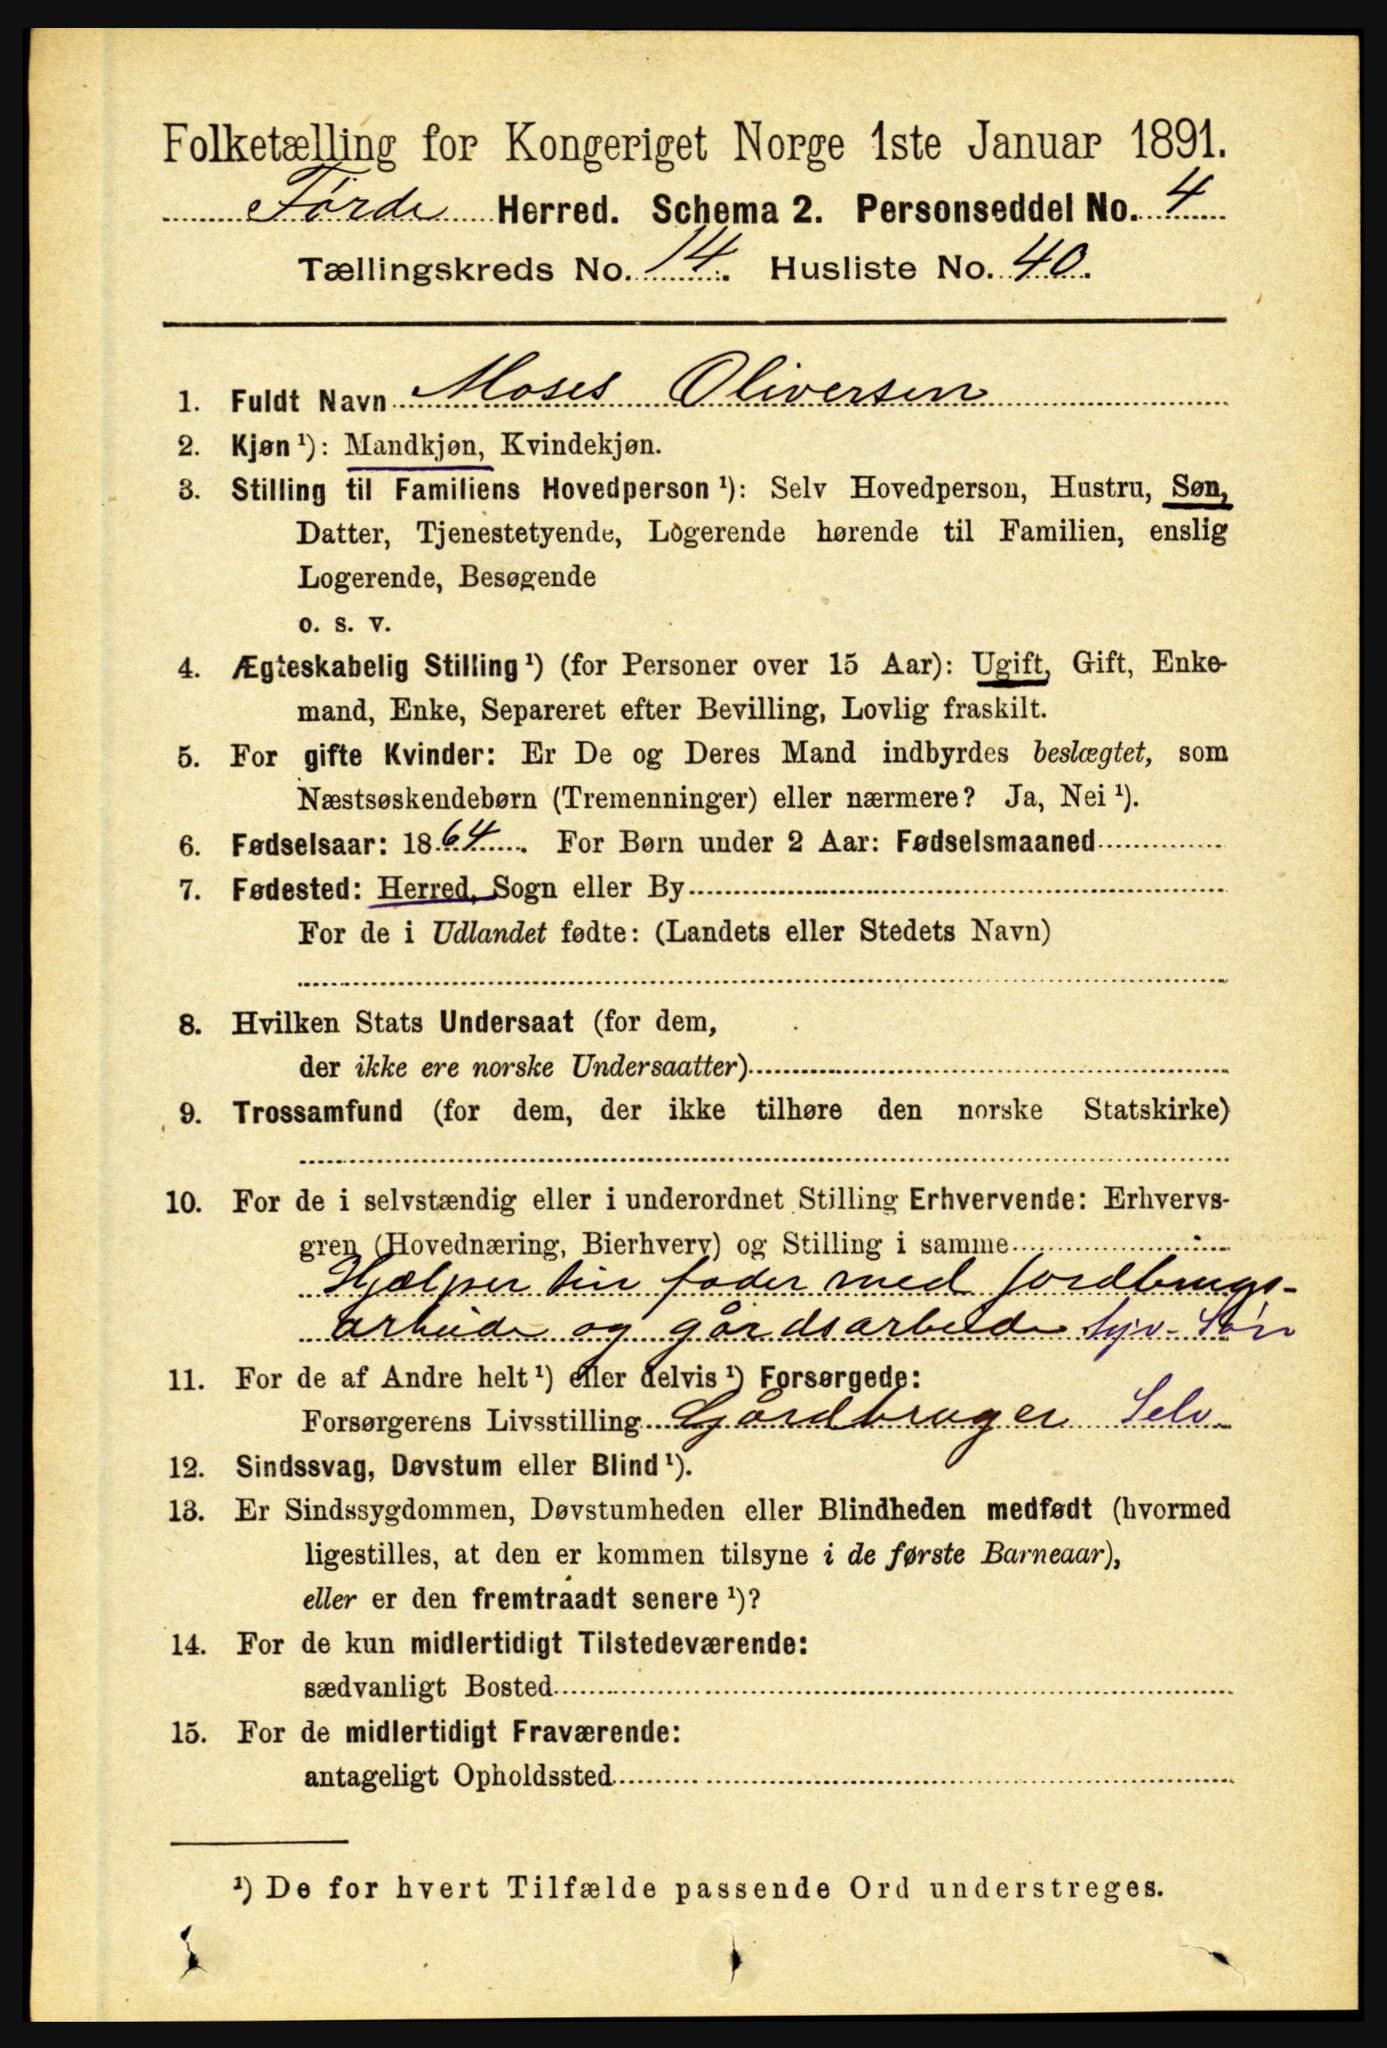 Folketælling for Kongeriget Norge 1ste Januar 1891.
Førde Herred. Schema 2. Personseddel No. 4
Tællingskreds No. 14. Husliste No. 40.
1. Fuldt Navn Moses Oliversen
2. Kjøn ¹): Mandkjøn, Kvindekjøn.
3. Stilling til Familiens Hovedperson ¹): Selv Hovedperson, Hustru, Søn,
Datter, Tjenestetyende, Logerende hørende til Familien, enslig
Logerende, Besøgende
o. s. v.
4. Ægteskabelig Stilling ¹) (for Personer over 15 Aar): Ugift, Gift, Enke-
mand, Enke, Separeret efter Bevilling, Lovlig fraskilt.
5. For gifte Kvinder: Er De og Deres Mand indbyrdes beslægtet, som
Næstsøskendebørn (Tremenninger) eller nærmere? Ja, Nei ¹).
6. Fødselsaar: 1864. For Børn under 2 Aar: Fødselsmaaned
7. Fødested: Herred, Sogn eller By
For de i Udlandet fødte: (Landets eller Stedets Navn)
8. Hvilken Stats Undersaat (for dem,
der ikke ere norske Undersaatter)
9. Trossamfund (for dem, der ikke tilhøre den norske Statskirke)
10. For de i selvstændig eller i underordnet Stilling Erhvervende: Erhvervs-
gren (Hovednæring, Bierhverv) og Stilling i samme
Hjælper sin fader med jordbrugs-
arbeide og gårdsarbeide Søn
11. For de af Andre helt ¹) eller delvis ¹) Forsørgede:
Forsørgerens Livsstilling Gårdbruger Selv
12. Sindssvag, Døvstum eller Blind ¹).
13. Er Sindssygdommen, Døvstumheden eller Blindheden medfødt (hvormed
ligestilles, at den er kommen tilsyne i de første Barneaar),
eller er den fremtraadt senere ¹)?
14. For de kun midlertidigt Tilstedeværende:
sædvanligt Bosted
15. For de midlertidigt Fraværende:
antageligt Opholdssted
¹) De for hvert Tilfælde passende Ord understreges.